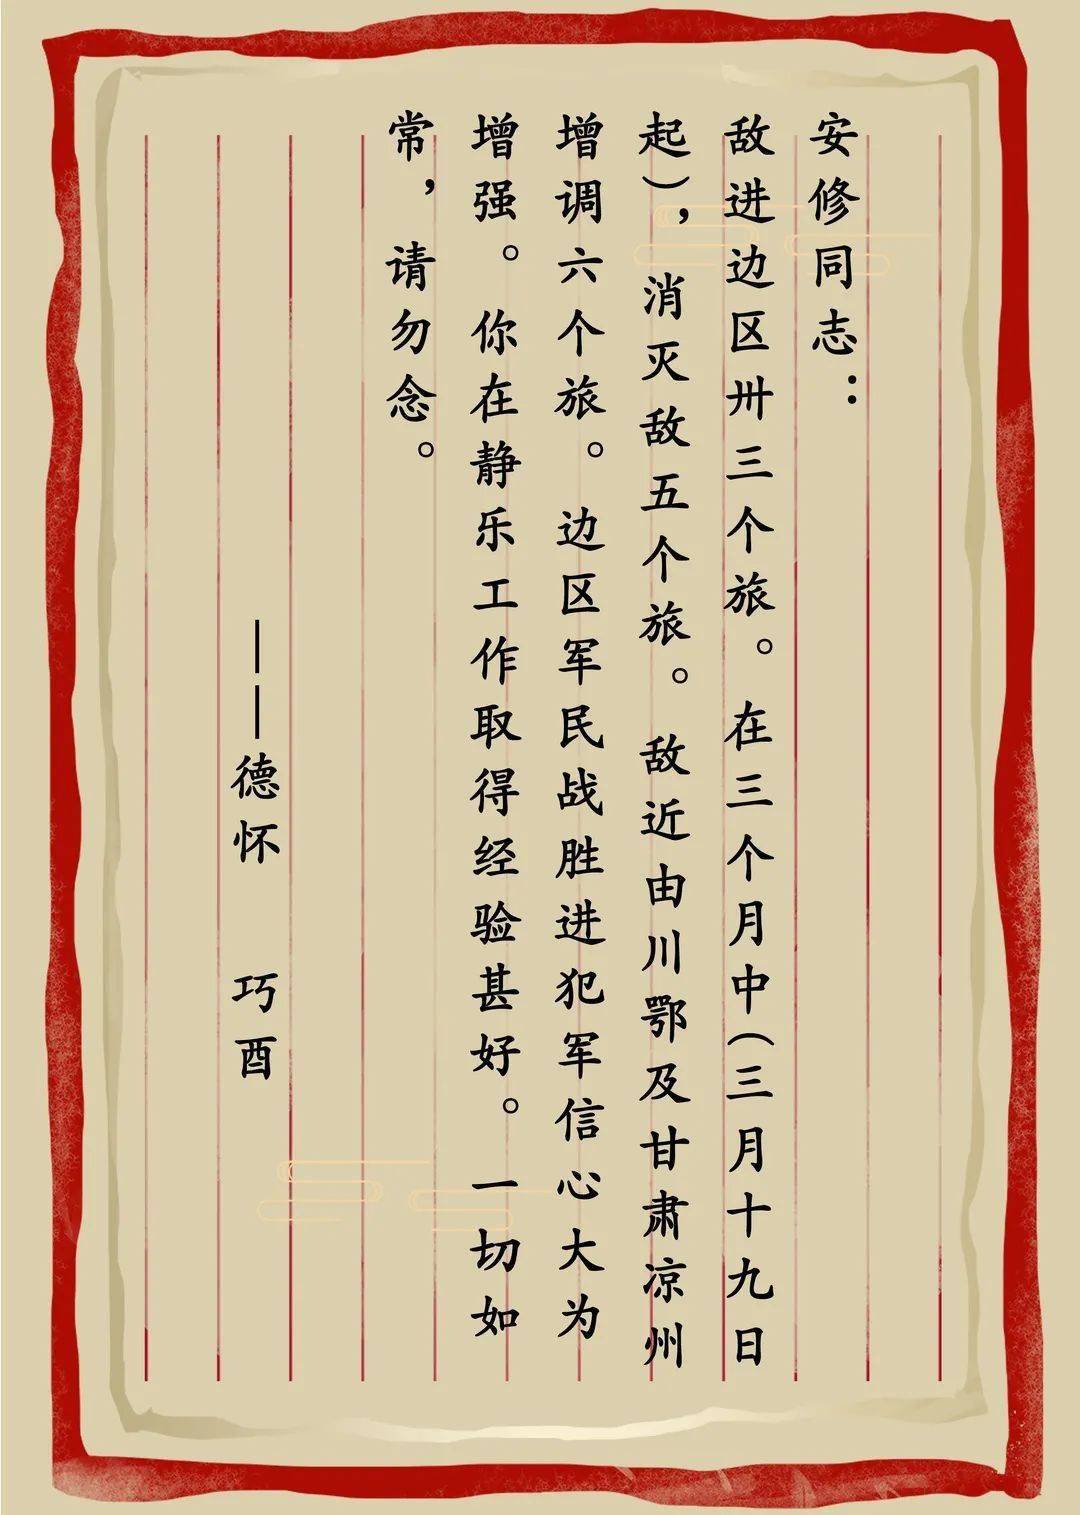 安修同志：
敌进边区卅三个旅。在三个月中（三月十九日
起），消灭敌五个旅。敌近由川鄂及甘肃凉州
增调六个旅。边区军民战胜进犯军信心大为
增强。你在静乐工作取得经验甚好。一切如
常，请勿念。
——德怀 巧酉